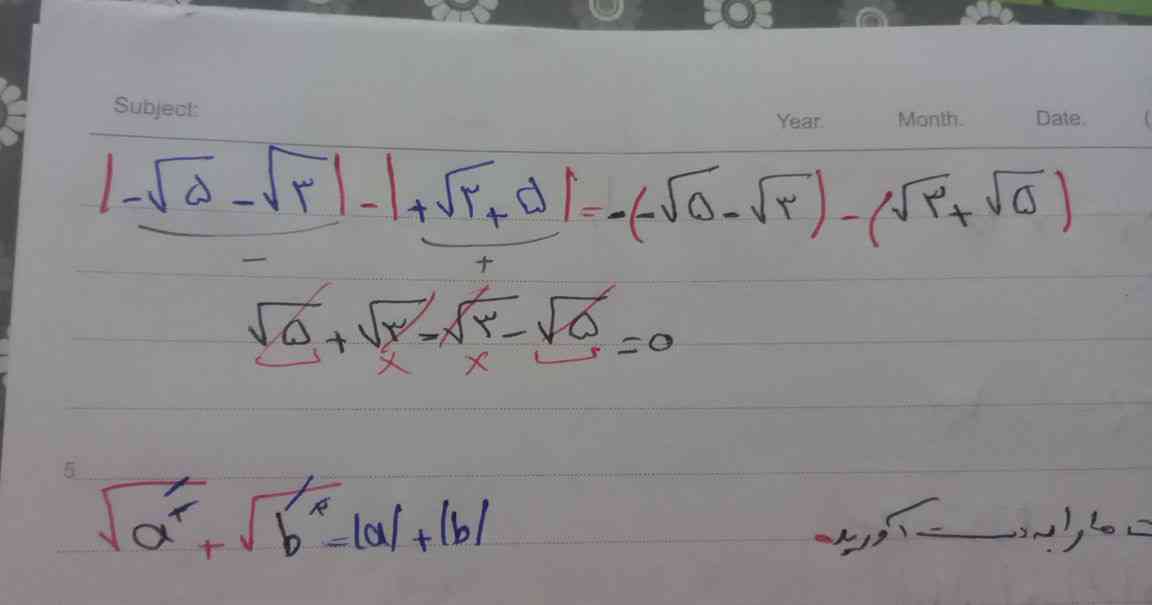 Subject: Year. Month. Date. (
|-√۵ -√۳| - |+√۳+ ۵| = -(-√۵ - √۳) - (√۳ + √۵)
- +
√۵ + √۳ - √۳ - √۵ = ۰
× ×
5
√a² + √b² = |a| + |b| ت ما را به دست آورید.